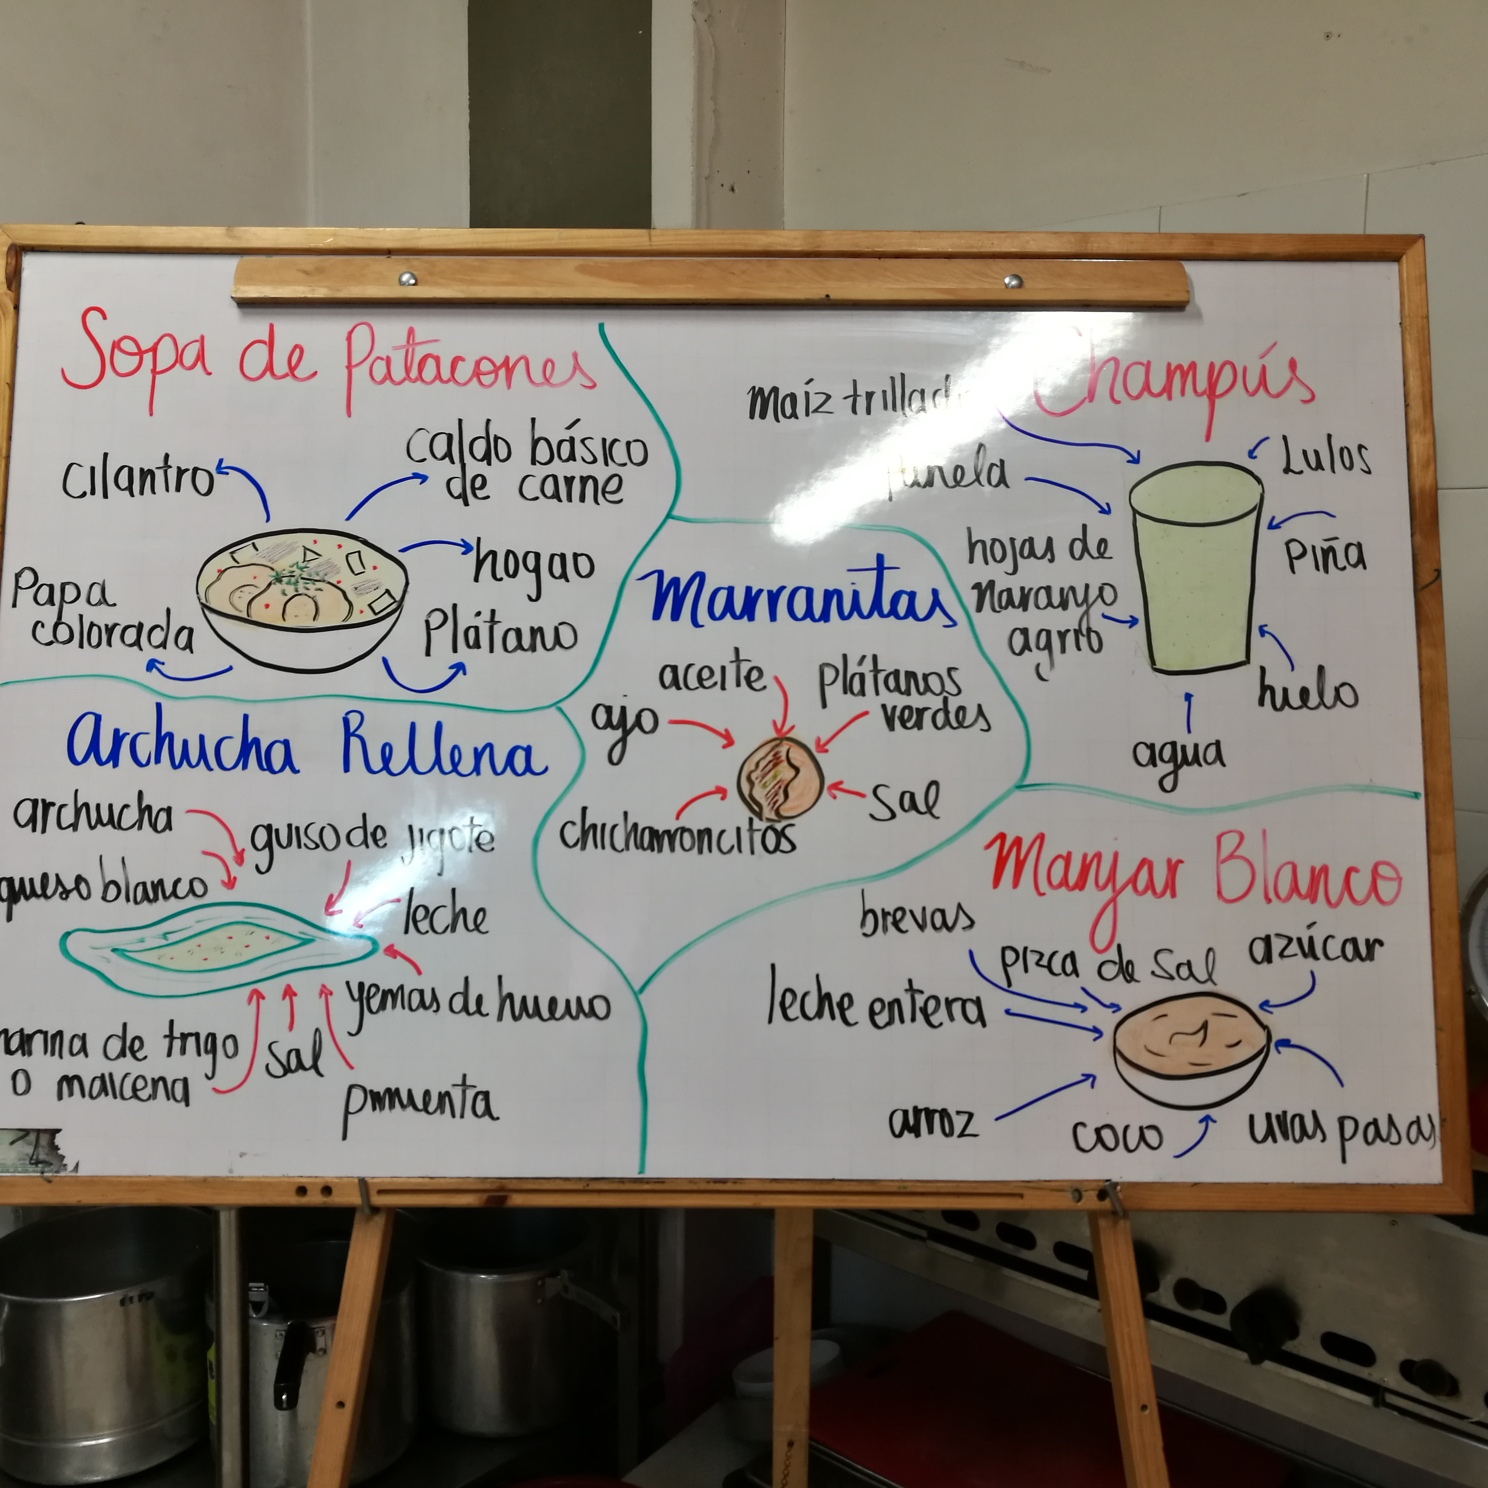 Sopa de Patacones
cilantro
caldo básico
de carne
hogao
Papa
colorada
Plátano
Champús
maíz trillado
panela
Lulos
hojas de
naranjo
agrio
Piña
hielo
agua
Marranitas
aceite
plátanos
verdes
ajo
sal
chicharroncitos
Archucha Rellena
archucha
guiso de jigote
queso blanco
leche
yemas de huevo
harina de trigo
o maicena
sal
pimienta
Manjar Blanco
brevas
pizca de sal
azúcar
leche entera
arroz
coco
uvas pasas